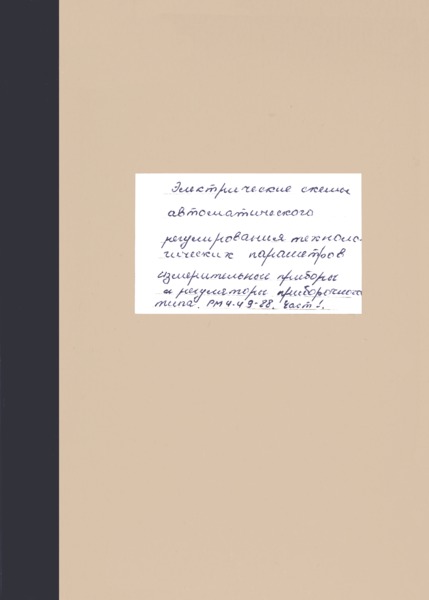 Электрические схемы
автоматического
регулирования техноло-
гических параметров
измерительные приборы
и регуляторы приборного
типа. РМ4-49-88. Част 1.